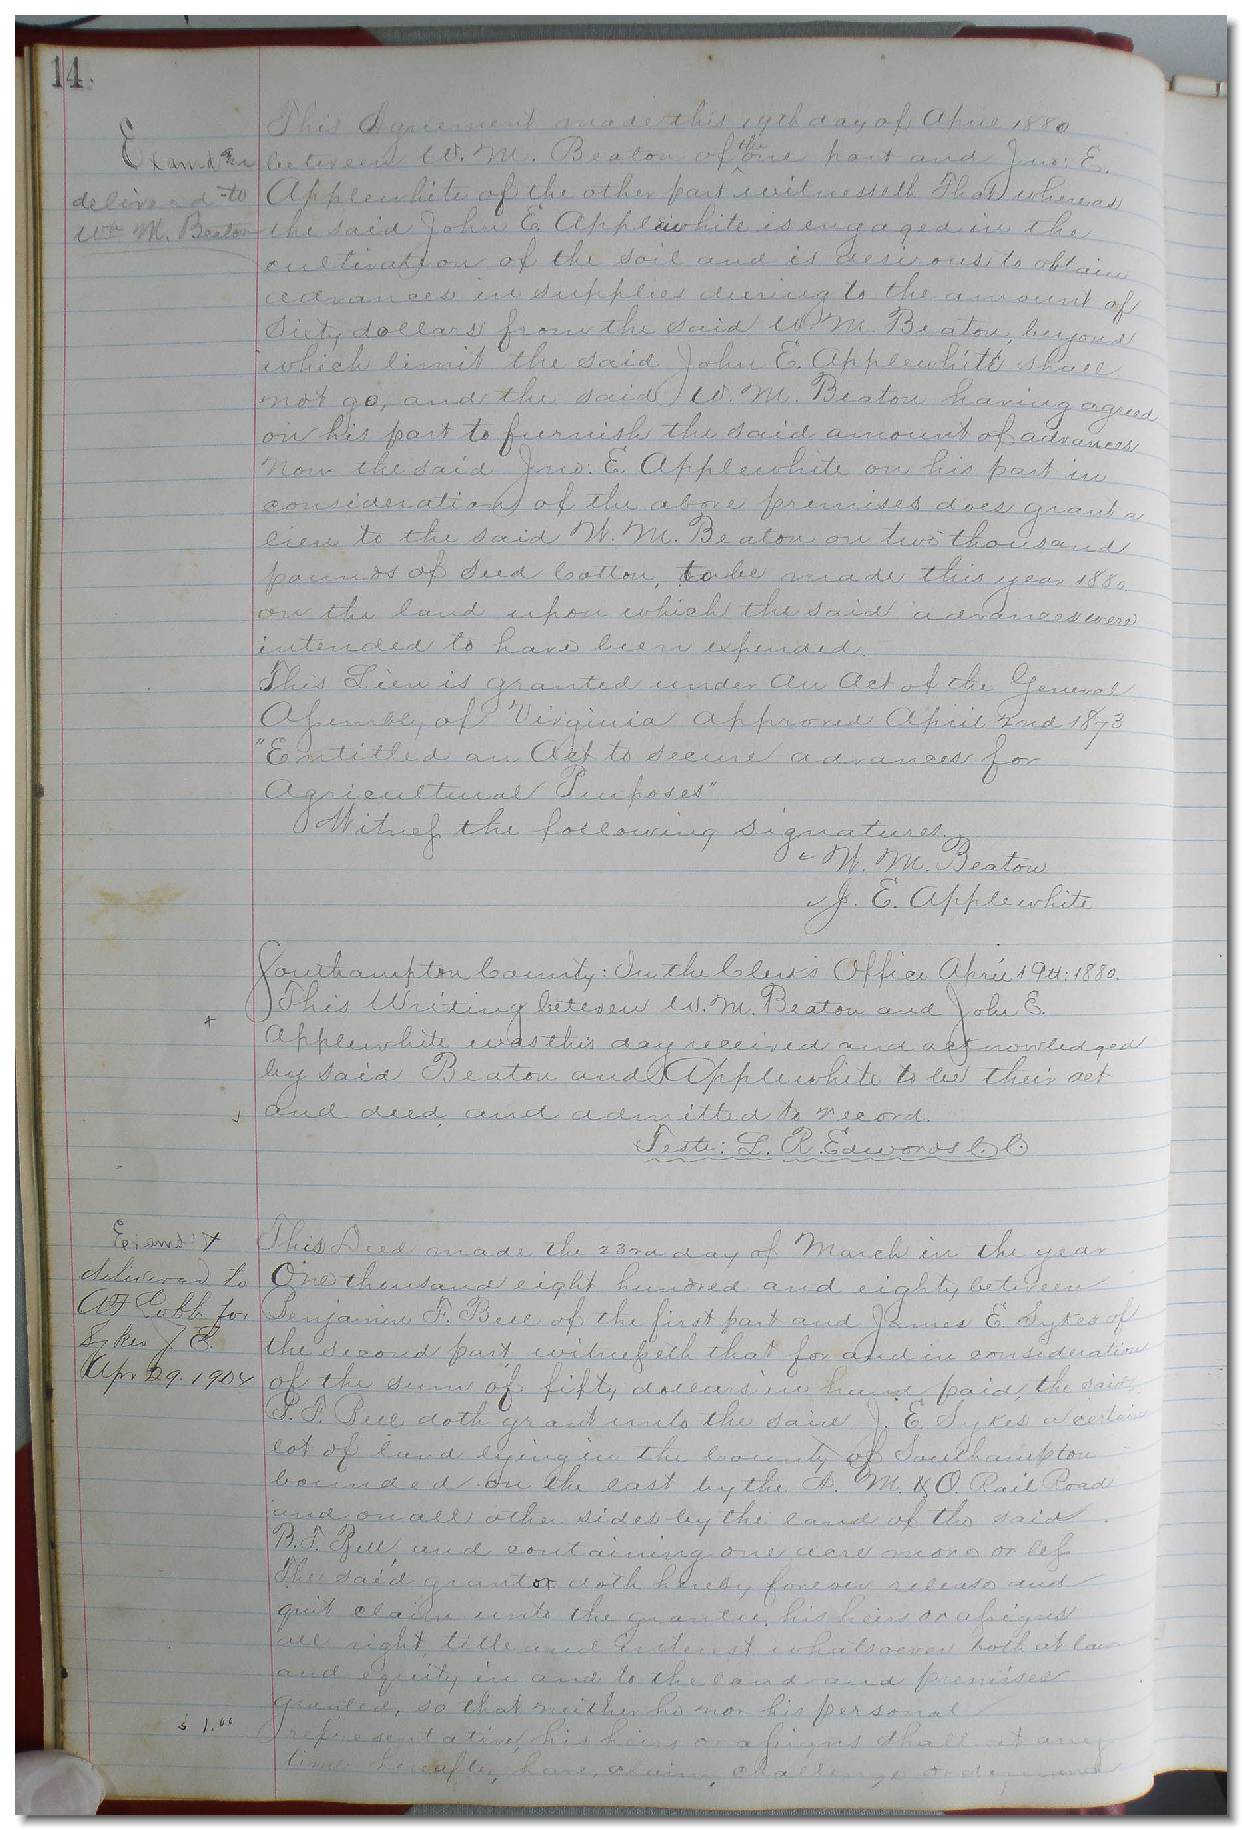 14.
This Agreement made this 19th day of April 1880
Examd &
delivered to
Wm M. Beaton
between W. M. Beaton of the one part and Jno. E.
Applewhite of the other part witnesseth That whereas
the said John E. Applewhite is engaged in the
cultivation of the soil and is desirous to obtain
advances in supplies during to the amount of
Sixty dollars from the said W. M. Beaton, beyond
which limit the said John E. Applewhite shall
not go, and the said W. M. Beaton having agreed
on his part to furnish the said amount of advances
Now the said Jno. E. Applewhite on his part in
consideration of the above premises does grant a
lien to the said W. M. Beaton on two thousand
pounds of seed Cotton, to be made this year 1880
on the land upon which the said advances were
intended to have been expended.
This Lien is granted under an Act of the General
Assembly of Virginia approved April 2nd 1873
"Entitled an Act to secure advances for
Agricultural Purposes"
Witness the following signatures.
W. M. Beaton
J. E. Applewhite
Southampton County: In the Clerk's Office April 19th: 1880.
This Writing between W. M. Beaton and John E.
Applewhite was this day received and acknowledged
by said Beaton and Applewhite to be their act
and deed, and admitted to record.
Teste: L. R. Edwards C. C.
Examd &
delivered to
Cobb for
Sykes J. E.
Apr 29. 1904
This Deed made the 23rd day of March in the year
One thousand eight hundred and eighty between
Benjamin F. Bell of the first part and James E. Sykes of
the second part, witnesseth that for and in consideration
of the sum of fifty dollars in hand paid, the said
B. F. Bell doth grant unto the said J. E. Sykes a certain
lot of land lying in the County of Southampton
bounded on the east by the A. M. & O. Rail Road
and on all other sides by the land of the said
B. F. Bell, and containing one acre more or less
The said grantor doth hereby forever release and
quit claim unto the grantee, his heirs or assigns
all right, title and interest whatsoever both at law
and equity in and to the land and premises
granted, so that neither he nor his personal
$ 1.00
representative, his heirs or assigns shall at any
time hereafter, have, claim, challenge or demand